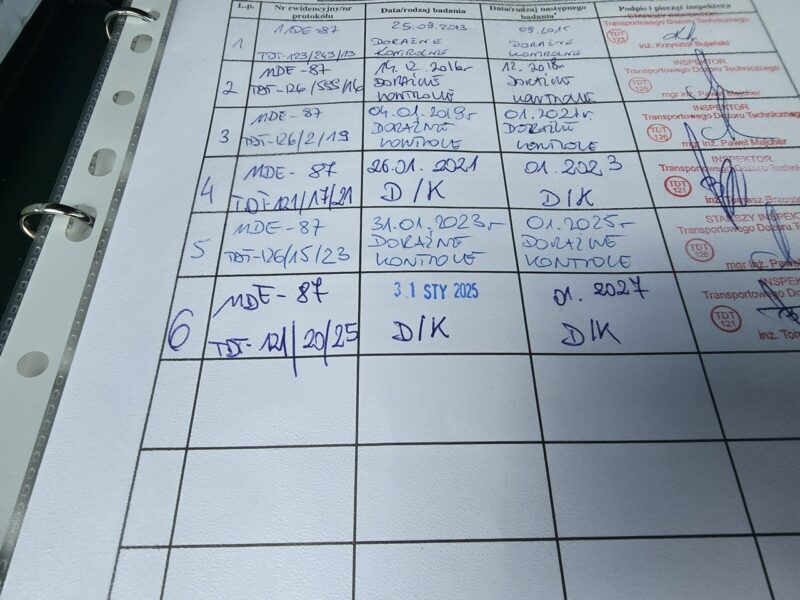 L.p.
Nr ewidencyjny/nr protokołu
Data/rodzaj badania
Data/rodzaj następnego badania
Podpis i pieczęć inspektora
1
MDE-87
TDT-123/243/13
25.09.2013
DORAŹNE
KONTROLNE
09.2015
DORAŹNE
KONTROLNE
Transportowego Dozoru Technicznego
TDT
123
inż. Krzysztof Bujański
2
MDE-87
TDT-126/559/16
14.12.2016r.
DORAŹNE
KONTROLE
12.2018r.
DORAŹNE
KONTROLE
INSPEKTOR
Transportowego Dozoru Technicznego
TDT
126
mgr inż. Paweł Mejcher
3
MDE-87
TDT-126/2/19
04.01.2019r
DORAŹNE
KONTROLE
01.2021r.
DORAŹNE
KONTROLE
INSPEKTOR
Transportowego Dozoru Technicznego
TDT
126
mgr inż. Paweł Mejcher
4
MDE-87
TDT-121/17/21
26.01.2021
D/K
01.2023
D/K
INSPEKTOR
Transportowego Dozoru
TDT
121
5
MDE-87
TDT-126/15/23
31.01.2023r
DORAŹNE
KONTROLE
01.2025r
DORAŹNE
KONTROLE
STARSZY INSPE
Transportowego Dozoru Te
TDT
126
mgr inż. Paweł
6
MDE-87
TDT-121/20/25
31 STY 2025
D/K
01.2027
D/K
INSPEK
Transportowego Dozoru
TDT
121
inż. Tom